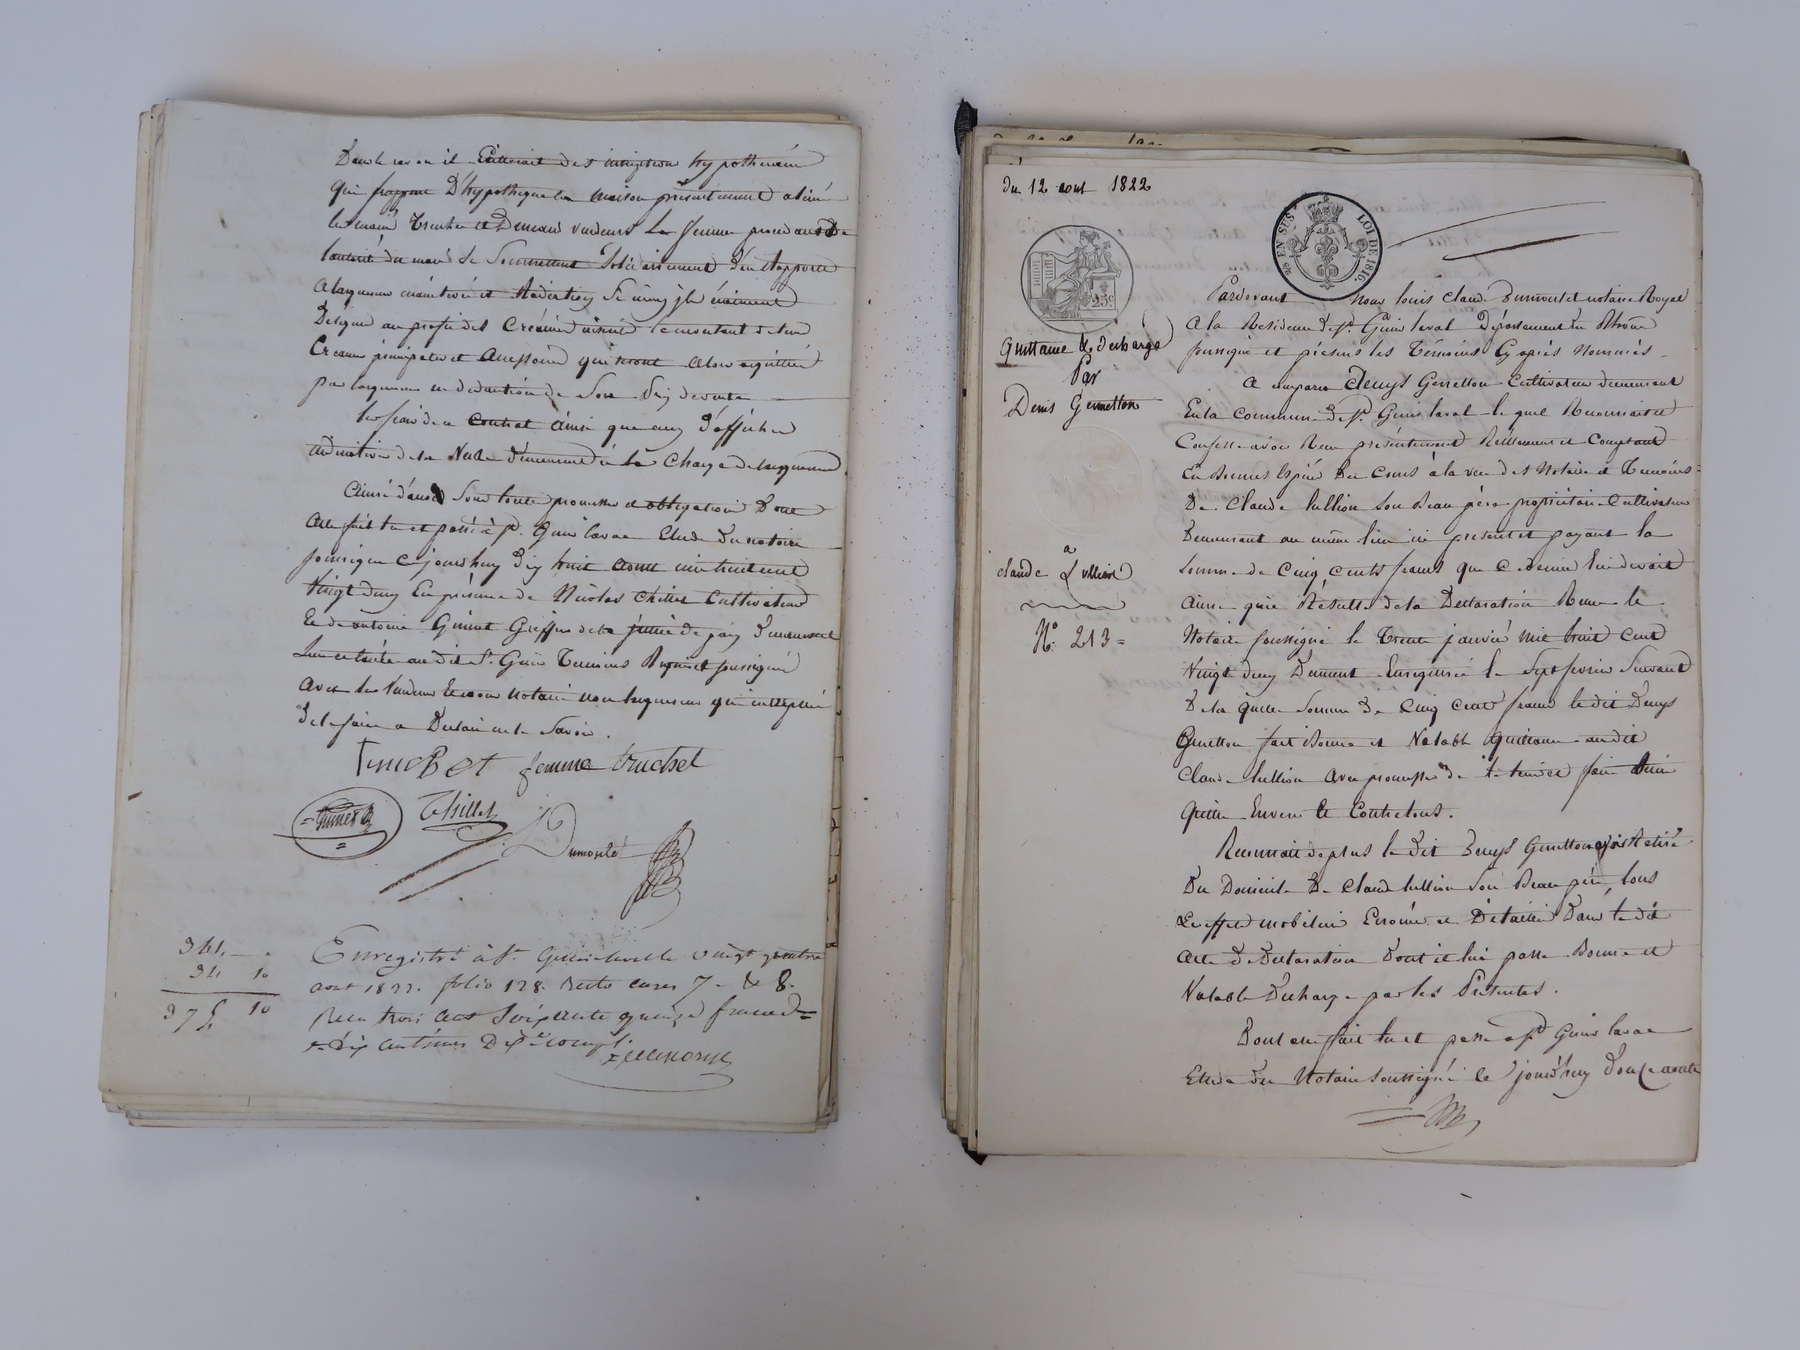 Dans le cas ou il Existerait des inscriptions hypothécaires
qui frappent D'hypothèque la maison présentement aliénée
les mariés Truchet et Dumond vendeurs La femme procédant de
l'autorité du mari Se Soumettent Solidairement d'en rapporter
a laquereur main levée et Radiation Si mieux ils n'aiment
Déléguer au profit des Créanciers inscrits le montant de leur
Créance principale et accessoires qui seront alors acquittés
par laquereur en déduction de Son Prix de vente
les frais de ce Contrat ainsi que ceux D'affiches
de la Vente Demeurent à la Charge de laquereur
Ainsi Sous toute promesse et obligation Dont
Acte fait lu et passé à St. Genis laval Etude du notaire
soussigné ce jourd'huy Dix huit août mil huit cent
Vingt deux En présence de Nicolas Thillet Cultivateur
Et de antoine Guinet Greffier de la justice de paix Demeurant
audit St. Genis Témoins Requis et soussignés
avec les Vendeurs Et nous notaire non laquereur qui interpellé
de le faire a Déclaré ne le Savoir.
femme truchet
Guinet
Thillet
Dumortet
341. — .
34 10
375 10
Enregistré à St. Genis laval le vingt quatre
aout 1822. folio 128. Recto cases 7 & 8.
Reçu trois cent Soixante quinze francs
dix centimes Dixme compris.
du 12 aout 1822
EN SUS
LOI DE 1816.
25c
Quittance & décharge
Par
Denis Gonetton
à
Claude Lullion
N.° 213 =
Pardevant Nous louis Claude Dumortet notaire Royal
A la Résidence de St. Genis laval Département du Rhône
soussigné et présens les Témoins Cy après Nommés
A comparu Denys Gonetton Cultivateur demeurant
En la Commune de St. Genis laval lequel Reconnait et
Confesse avoir Reçu présentement Réellement et Comptant
En Bonnes Espèces De Cours à la vue des Notaire et Témoins
De Claude Lullion Son Beau père propriétaire Cultivateur
Demeurant au même lieu ici présent et payant la
Somme de Cinq Cents francs que ce dernier lui devait
ainsi qu'il Résulte de la Déclaration Reçue le
Notaire soussigné le Trente janvier mil huit cent
Vingt deux Dument Enregistré le Sept février Suivant
De la quelle Somme de Cinq cents francs le dit Denys
Gonetton fait Bonne et Valable quittance audit
Claude Lullion avec promesse de l'en faire tenir
quitte Envers Et Contre tous.
Reconnait de plus le dit Denys Gonetton avoir Retiré
Du Domicile De Claude Lullion Son Beau père, tous
Les effets mobiliers Enoncés et Détaillés Dans le dit
acte de Déclaration Dont il lui passe Bonne et
Valable Décharge par les Présentes.
Dont acte fait lu et passé a St Genis laval
Etude du Notaire soussigné le jourd'huy douze aoust